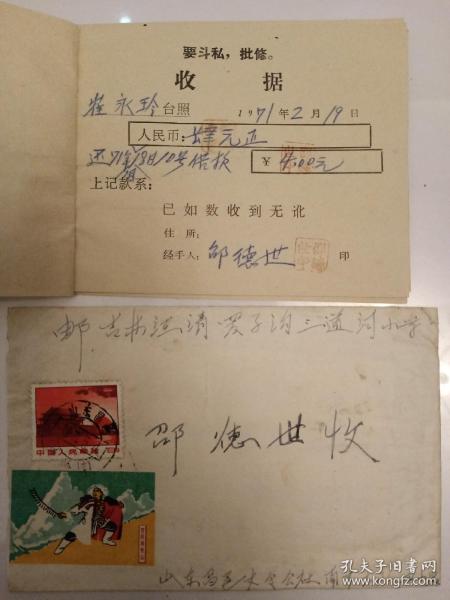 要斗私，批修。
收 据
崔永玲台照 1971年2月19日
人民币：肆元正
还71年 月10号借款 ￥4.00元
上记款系：
已如数收到无讹
住所：
经手人：邵德世 印
邮 吉林汪清 子沟三道河小学
中国人民邮政
邵德世收
山东昌邑 公社
孔夫子旧书网